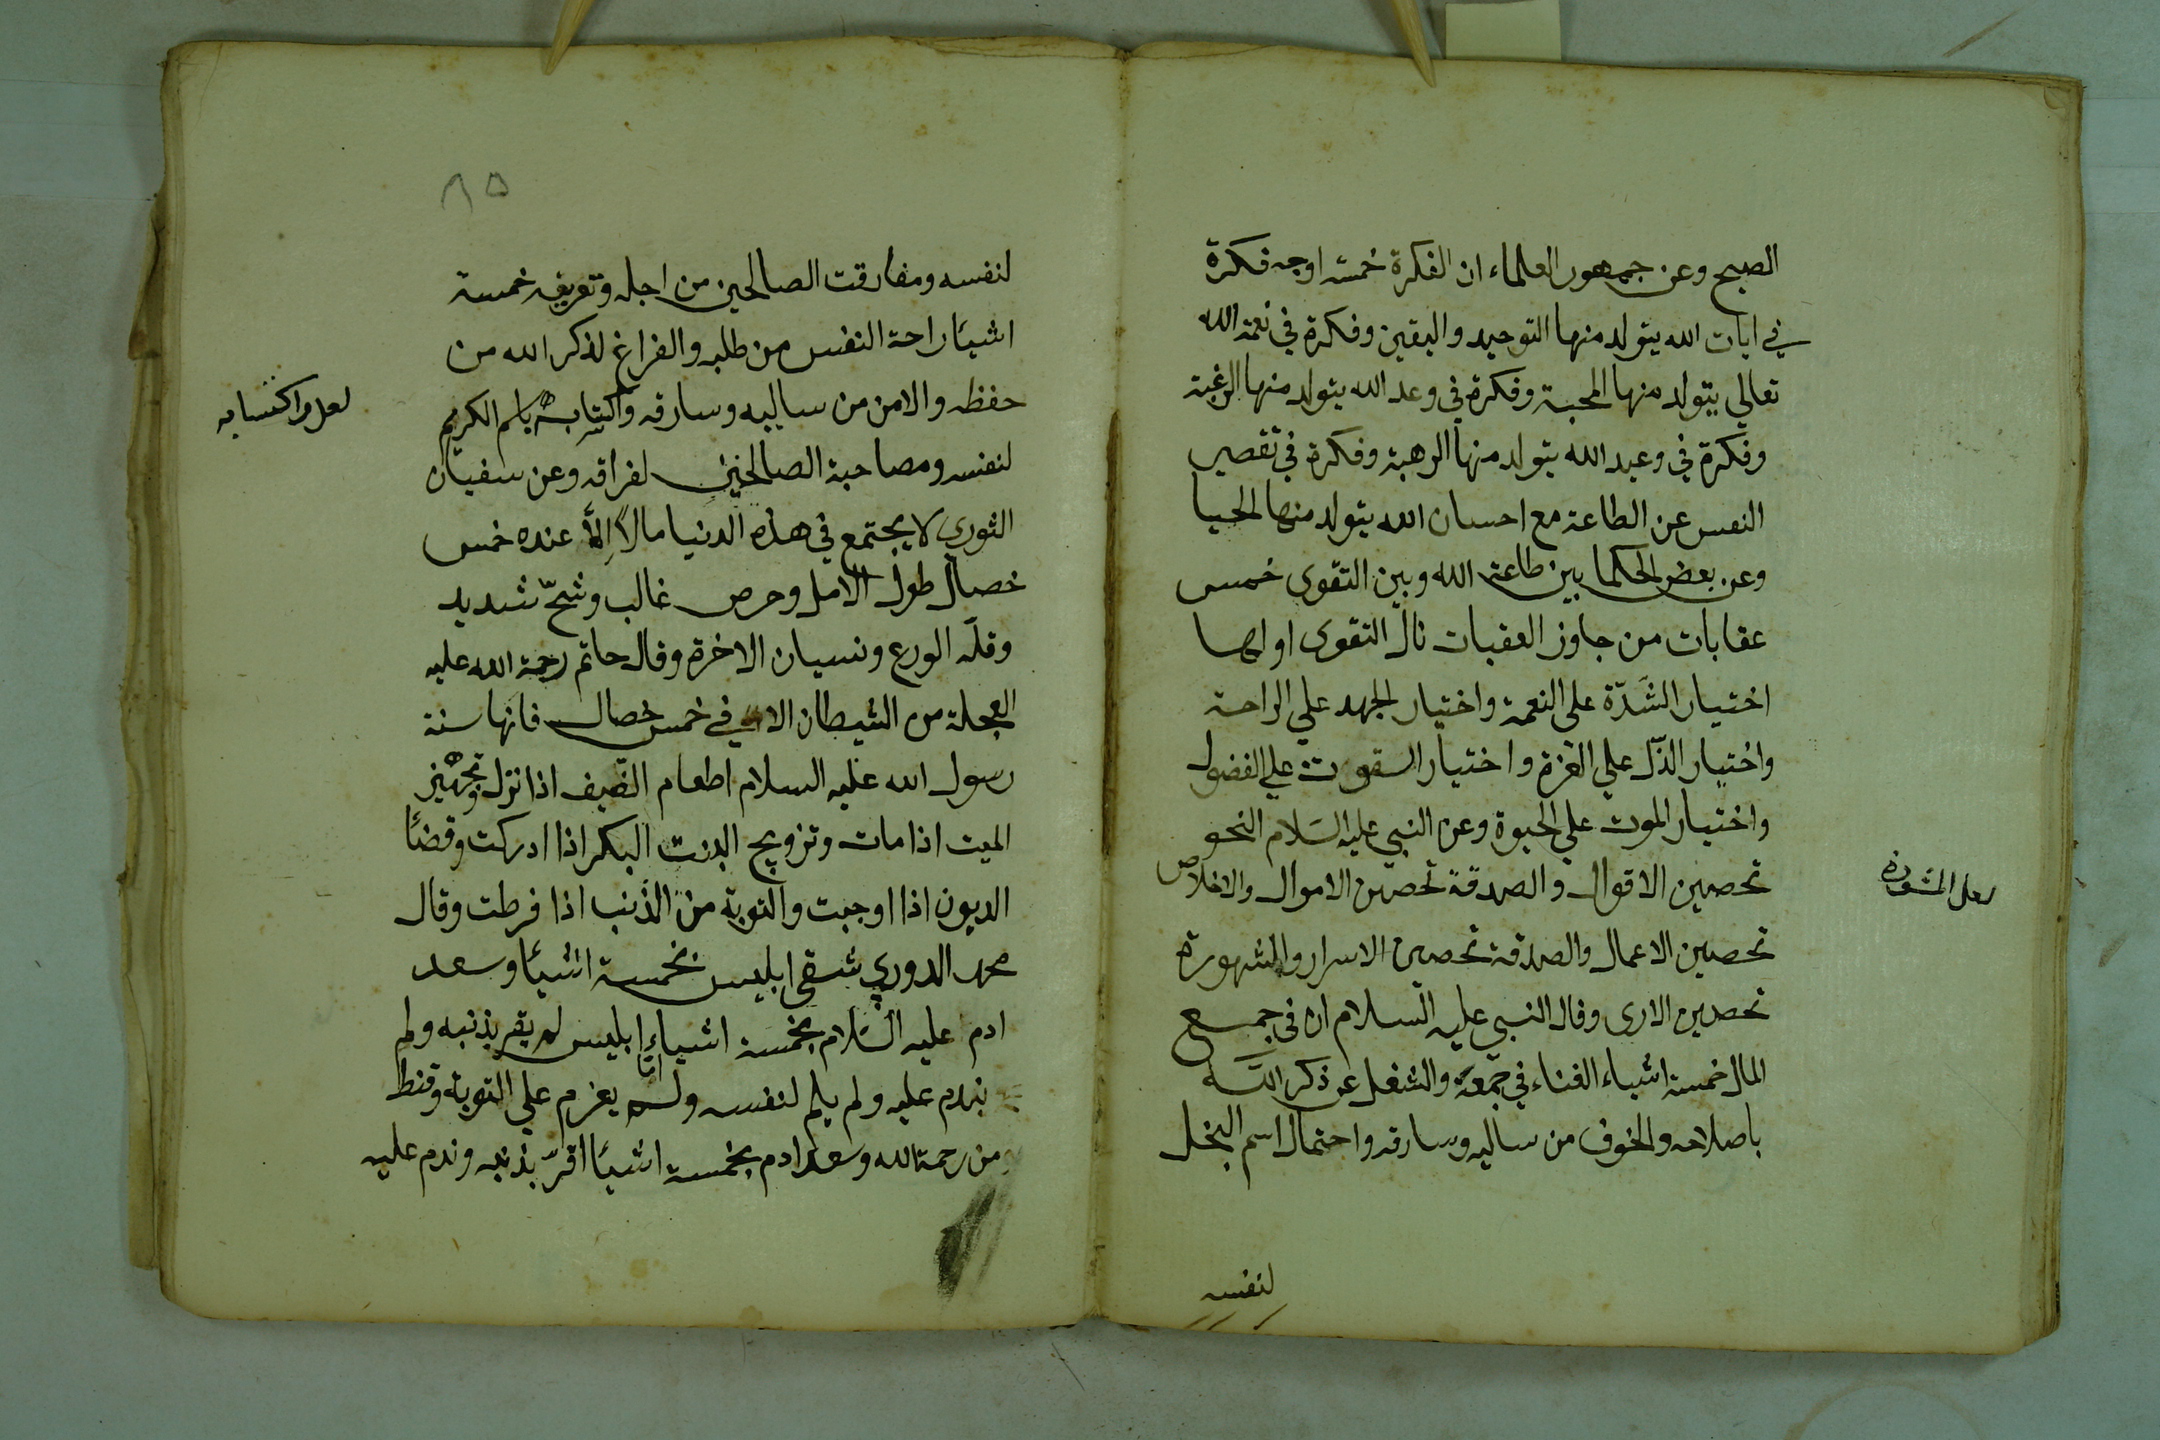 الصبح وعن جمهور العلماء ان الفكرة خمسة اوجه فكرة
في ايات الله يتولد منها التوحيد واليقين وفكرة في نعمة الله
تعالي يتولد منها المحبة وفكرة في وعد الله يتولد منها الرغبة
وفكرة في وعيد الله يتولد منها الرهبة وفكرة في تقصير
النفس عن الطاعة مع احسان الله يتولد منها الحيا
وعن بعض الحكما بين طاعة الله وبين التقوى خمس
عقابات من جاوز العقبات نال التقوى اولها
اختيار الشدّة على النعمة واختيار الجهد علي الراحة
واختيار الذّل علي العزة واختيار السقوت علي الفضول
واختيار الموت علي الحيوة وعن النبي عليه السلام النحو
تحصين الاقوال والصدقة تحصين الاموال والاخلاص
تحصين الاعمال والصدقة تحصين الاسرار والمشهورة
تحصين الارى وقال النبي عليه السلام ان في جمع
المال خمسة اشياء الفناء في جمعه والشغل عن ذكر الله
باصلاحه والخوف من ساليه وسارقه واحتمال اسم البخل
لعل المشورة
لنفسه
٨٥
لنفسه ومفارقت الصالحين من اجله وتعريفه خمسة
اشيئا راحة النفس من طلبه والفراغ لذكر الله من
حفظه والامن من ساليه وسارقه واكتابه باسم الكريم
لنفسه ومصاحبة الصالحين لفراقه وعن سفيان
الثوري لا يجتمع في هذه الدنيا مالاً إلاّ عنده خمس
خصال طول الامل وحرص غالب وشحّ شديد
وقلّه الورع ونسيان الاخرة وقال حاتم رحمة الله عليه
العجلة من الشيطان الا في خمس خصال فانها سنة
رسول الله عليه السلام اطعام الضّيف اذا نزل وتجهيز
الميت اذا مات وتزويج البنت البكر اذا ادركت وقضئا
الديون اذا اوجبت والتوبة من الذّنب اذا فرطت وقال
محمد الدوري شقى ابليس بخمسة اشيئا وسعد
ادم عليه السّلام بخمسة اشياء ابليس لم يقر بذنبه ولم
يندم عليه ولم يلم لنفسه ولم يعزم علي التوبة وقنط
من رحمة الله وسعد ادم بخمسة اشيئا اقرّ بذنبه وندم عليه
لعل واكتسابه